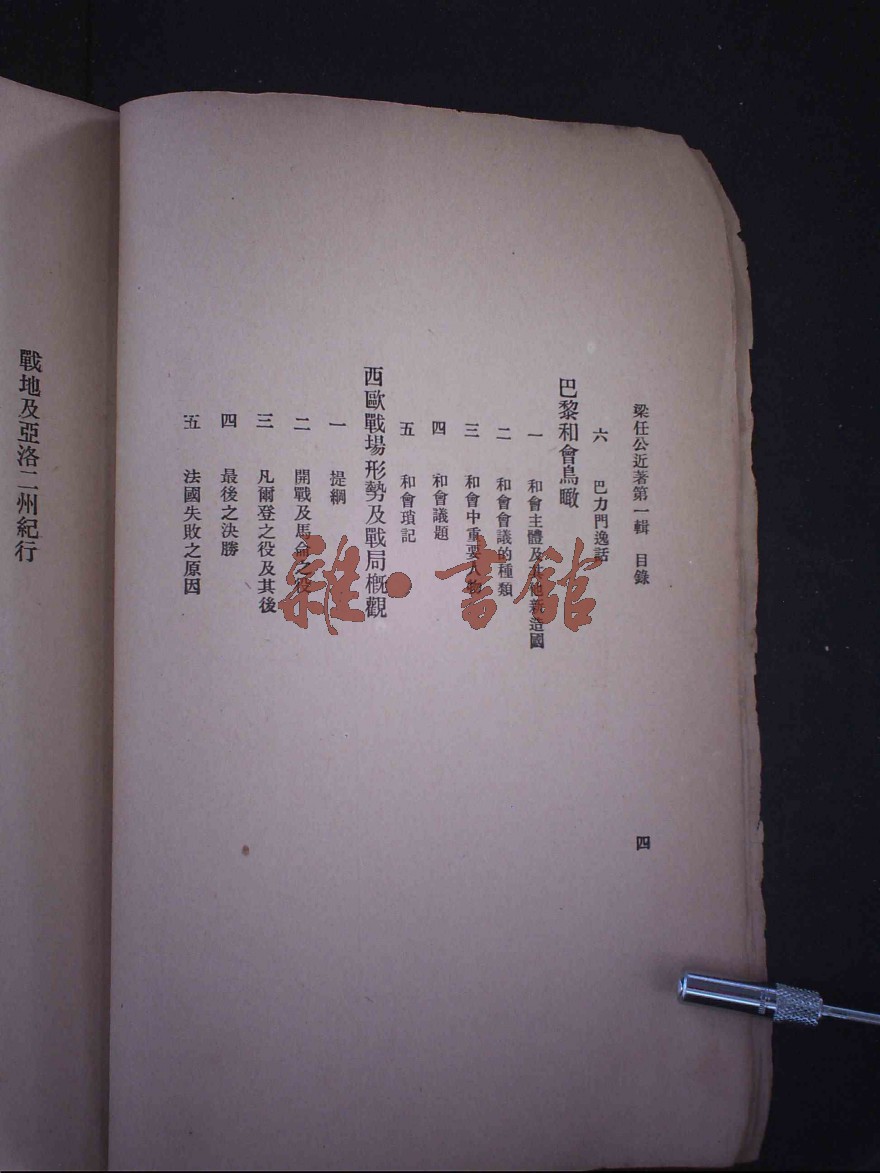 梁任公近著第一輯　目錄
四
六　巴力門逸話
巴黎和會鳥瞰
一　和會主體及其他新造國
二　和會會議的種類
三　和會中重要人物
四　和會議題
五　和會瑣記
西歐戰場形勢及戰局概觀
一　提綱
二　開戰及馬侖之役
三　凡爾登之役及其後
四　最後之決勝
五　法國失敗之原因
戰地及亞洛二州紀行
雜·書館